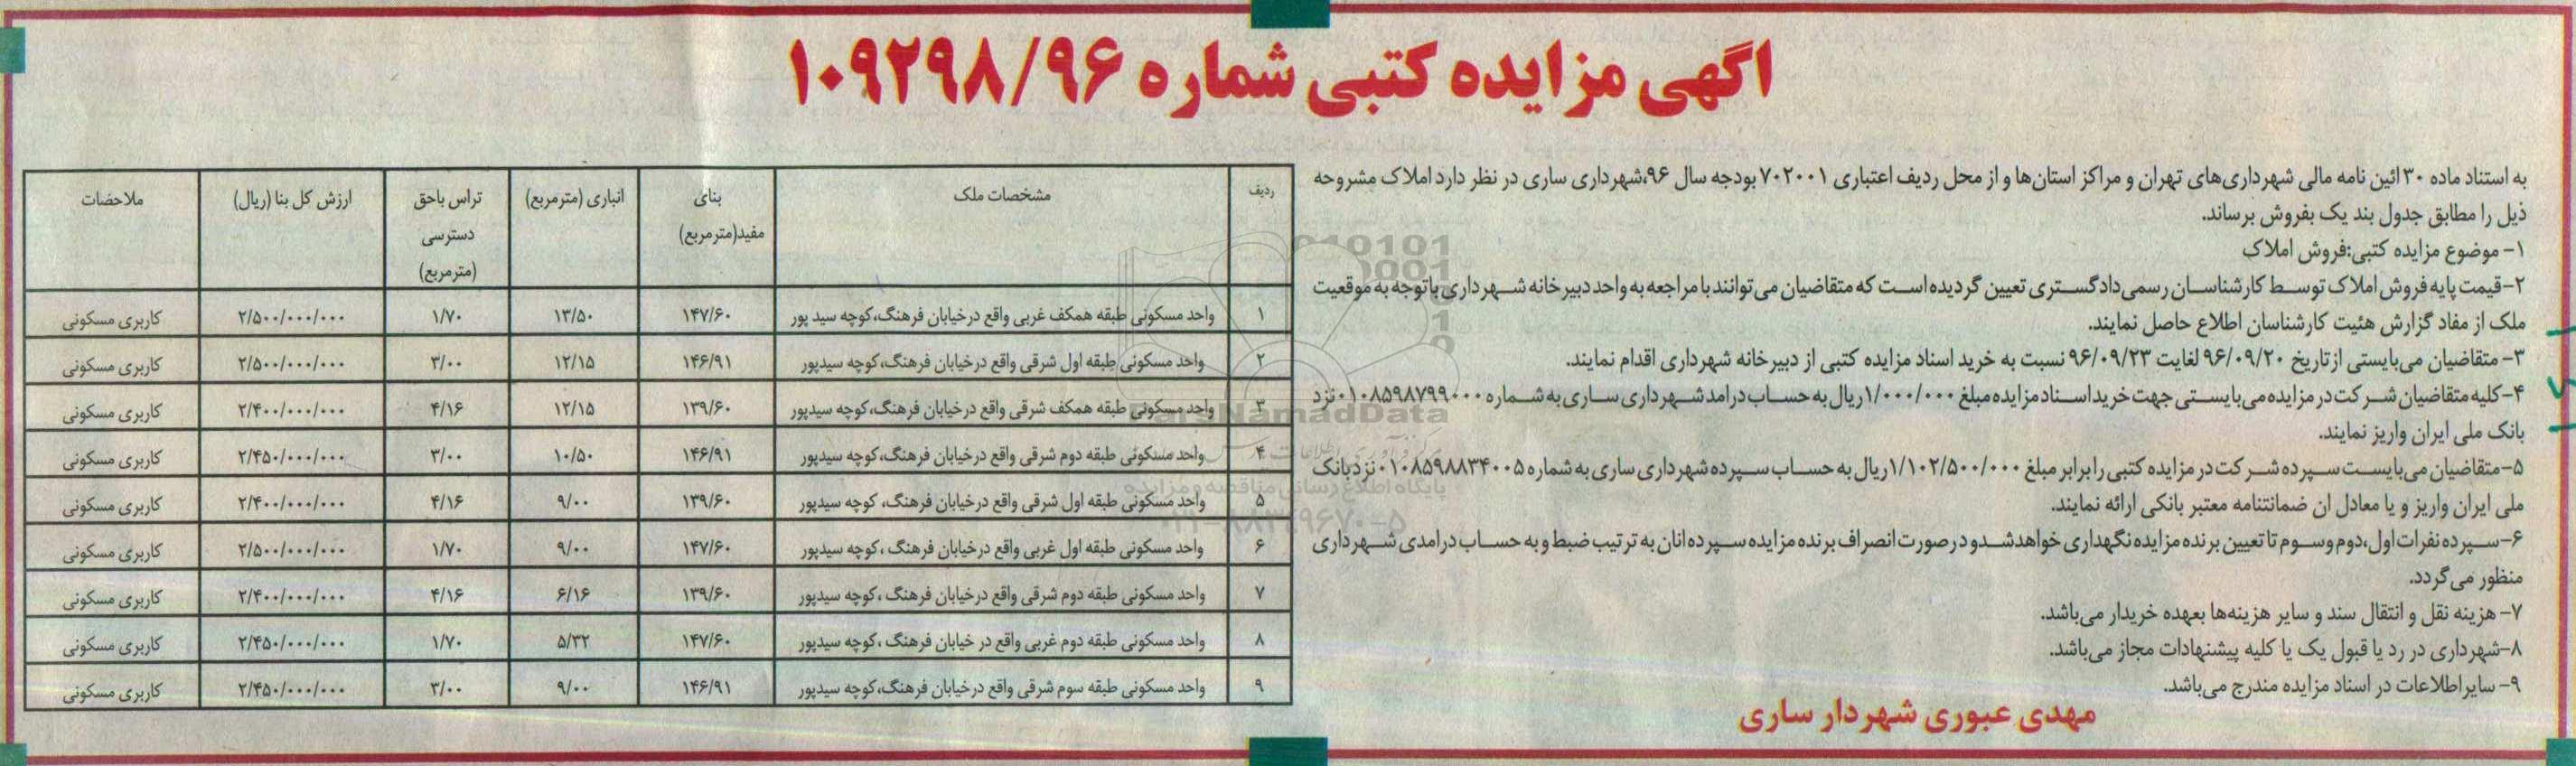 اگهی مزایده کتبی شماره ۱۰۹۲۹۸/۹۶
به استناد ماده ۳۰ ائین نامه مالی شهرداری‌های تهران و مراکز استان‌ها و از محل ردیف اعتباری ۷۰۲۰۰۱ بودجه سال ۹۶،شهرداری ساری در نظر دارد املاک مشروحه
ذیل را مطابق جدول بند یک بفروش برساند.
۱- موضوع مزایده کتبی:فروش املاک
۲-قیمت پایه فروش املاک توسط کارشناسان رسمی دادگستری تعیین گردیده است که متقاضیان می‌توانند با مراجعه به واحد دبیرخانه شهرداری باتوجه به موقعیت
ملک از مفاد گزارش هئیت کارشناسان اطلاع حاصل نمایند.
۳- متقاضیان می‌بایستی ازتاریخ ۹۶/۰۹/۲۰ لغایت ۹۶/۰۹/۲۳ نسبت به خرید اسناد مزایده کتبی از دبیرخانه شهرداری اقدام نمایند.
۴-کلیه متقاضیان شرکت در مزایده می‌بایستی جهت خرید اسناد مزایده مبلغ ۱/۰۰۰/۰۰۰ریال به حساب درامد شهرداری ساری به شماره ۰۱۰۸۵۹۸۷۹۹۰۰۰ نزد
بانک ملی ایران واریز نمایند.
۵-متقاضیان می‌بایست سپرده شرکت در مزایده کتبی را برابر مبلغ ۱/۱۰۲/۵۰۰/۰۰۰ریال به حساب سپرده شهرداری ساری به شماره ۰۱۰۸۵۹۸۸۳۴۰۰۵ نزد بانک
ملی ایران واریز و یا معادل ان ضمانتنامه معتبر بانکی ارائه نمایند.
۶-سپرده نفرات اول،دوم وسوم تا تعیین برنده مزایده نگهداری خواهد شد و درصورت انصراف برنده مزایده سپرده انان به ترتیب ضبط و به حساب درامدی شهرداری
منظور می‌گردد.
۷- هزینه نقل و انتقال سند و سایر هزینه‌ها بعهده خریدار می‌باشد.
۸-شهرداری در رد یا قبول یک یا کلیه پیشنهادات مجاز می‌باشد.
۹- سایراطلاعات در اسناد مزایده مندرج می‌باشد.
مهدی عبوری شهردار ساری
ردیف مشخصات ملک بنای مفید(مترمربع) انباری (مترمربع) تراس باحق دسترسی (مترمربع) ارزش کل بنا (ریال) ملاحضات
۱ واحد مسکونی طبقه همکف غربی واقع درخیابان فرهنگ،کوچه سید پور ۱۴۷/۶۰ ۱۳/۵۰ ۱/۷۰ ۲/۵۰۰/۰۰۰/۰۰۰ کاربری مسکونی
۲ واحد مسکونی طبقه اول شرقی واقع درخیابان فرهنگ،کوچه سیدپور ۱۴۶/۹۱ ۱۲/۱۵ ۳/۰۰ ۲/۵۰۰/۰۰۰/۰۰۰ کاربری مسکونی
۳ واحد مسکونی طبقه همکف شرقی واقع درخیابان فرهنگ،کوچه سیدپور ۱۳۹/۶۰ ۱۲/۱۵ ۴/۱۶ ۲/۴۰۰/۰۰۰/۰۰۰ کاربری مسکونی
۴ واحد مسکونی طبقه دوم شرقی واقع درخیابان فرهنگ،کوچه سیدپور ۱۴۶/۹۱ ۱۰/۵۰ ۳/۰۰ ۲/۴۵۰/۰۰۰/۰۰۰ کاربری مسکونی
۵ واحد مسکونی طبقه اول شرقی واقع درخیابان فرهنگ، کوچه سیدپور ۱۳۹/۶۰ ۹/۰۰ ۴/۱۶ ۲/۴۰۰/۰۰۰/۰۰۰ کاربری مسکونی
۶ واحد مسکونی طبقه اول غربی واقع درخیابان فرهنگ ، کوچه سیدپور ۱۴۷/۶۰ ۹/۰۰ ۱/۷۰ ۲/۵۰۰/۰۰۰/۰۰۰ کاربری مسکونی
۷ واحد مسکونی طبقه دوم شرقی واقع درخیابان فرهنگ ،کوچه سیدپور ۱۳۹/۶۰ ۶/۱۶ ۴/۱۶ ۲/۴۰۰/۰۰۰/۰۰۰ کاربری مسکونی
۸ واحد مسکونی طبقه دوم غربی واقع در خیابان فرهنگ ،کوچه سیدپور ۱۴۷/۶۰ ۵/۳۲ ۱/۷۰ ۲/۴۵۰/۰۰۰/۰۰۰ کاربری مسکونی
۹ واحد مسکونی طبقه سوم شرقی واقع درخیابان فرهنگ،کوچه سیدپور ۱۴۶/۹۱ ۹/۰۰ ۳/۰۰ ۲/۴۵۰/۰۰۰/۰۰۰ کاربری مسکونی
ParsNamadData
پایگاه اطلاع رسانی مناقصه و مزایده
۰۲۱-۸۸۳۴۹۶۷۰-۵